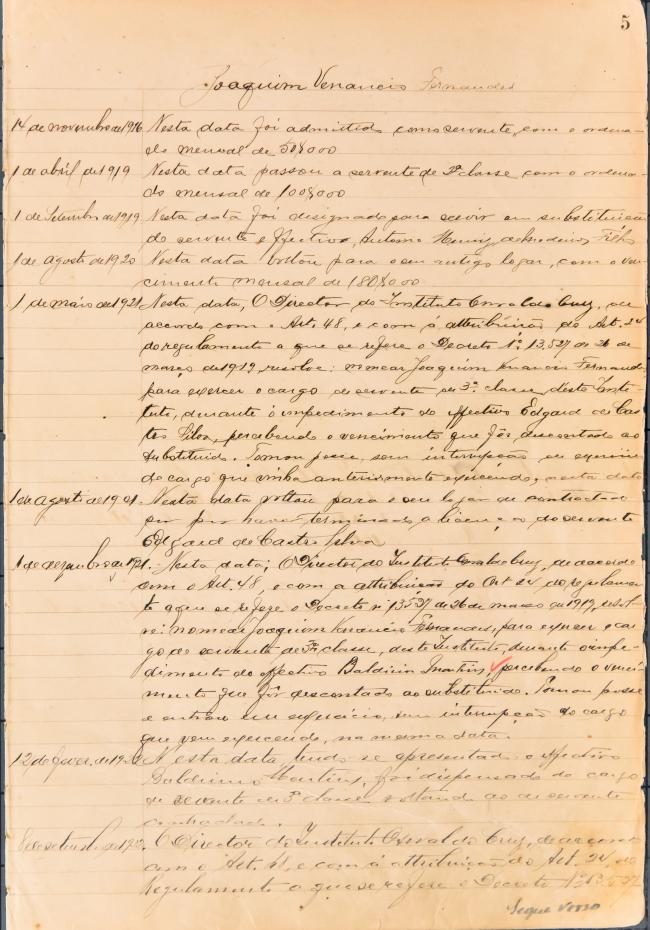 5
Joaquim Venancio Fernandes
14 de novembro de 1916 Nesta data foi admittido como servente, com o ordena-
do mensal de 50$000
1 de abril de 1919 Nesta data passou a servente de 3ª classe com o ordena-
do mensal de 100$000
1 de Setembro de 1919 Nesta data foi designado para servir em substituição
do servente effectivo, Antonio Muniz de Medeiros Filho
1 de agosto de 1920 Nesta data voltou para o seu antigo logar, com o ven-
cimento mensal de 180$000
1 de maio de 1921 Nesta data, O Director do Instituto Oswaldo Cruz, de
accordo com o Art. 48, e com a attribuição do Art. 24
do regulamento a que se refere o Decreto Nº 13.527 de 26 de
março de 1919, resolve: nomear Joaquim Venancio Fernandes
para exercer o cargo de servente de 3ª classe deste Insti-
tuto, durante o impedimento do effectivo Edgard de Cas-
tro Silva, percebendo o vencimento que fôr descontado ao
substituido. Tomou posse, sem interrupção de exercicio
do cargo que vinha anteriormente exercendo, nesta data
1 de agosto de 1921. Nesta data voltou para o seu logar de contracta-
do por haver terminado a licença do servente
Edgard de Castro Silva
1 de dezembro de 1921. Nesta data, O Director do Instituto Oswaldo Cruz, de accordo
com o Art. 48, e com a attribuição do Art 24 do regulamen-
to a que se refere o Decreto nº 13527 de 26 de março de 1919, resol-
ve: nomear Joaquim Venancio Fernandes, para exercer o car-
go de servente de 3ª classe, deste Instituto, durante o impe-
dimento do effectivo Balduino Martins, percebendo o venci-
mento que fôr descontado ao substituido. Tomou posse
e entrou em exercicio, sem interrupção do cargo
que vem exercendo, na mesma data.
12 de fever. de Nesta data tendo se apresentado o effectivo
Balduino Martins, foi dispensado do cargo
de servente de 3ª classe voltando ao de servente
contractado.
de setembro de O Director do Instituto Oswaldo Cruz, de accordo
com o Art. 48, e com a attribuição do Art. 24, do
Regulamento a que se refere o Decreto Nº 13.527
Segue verso